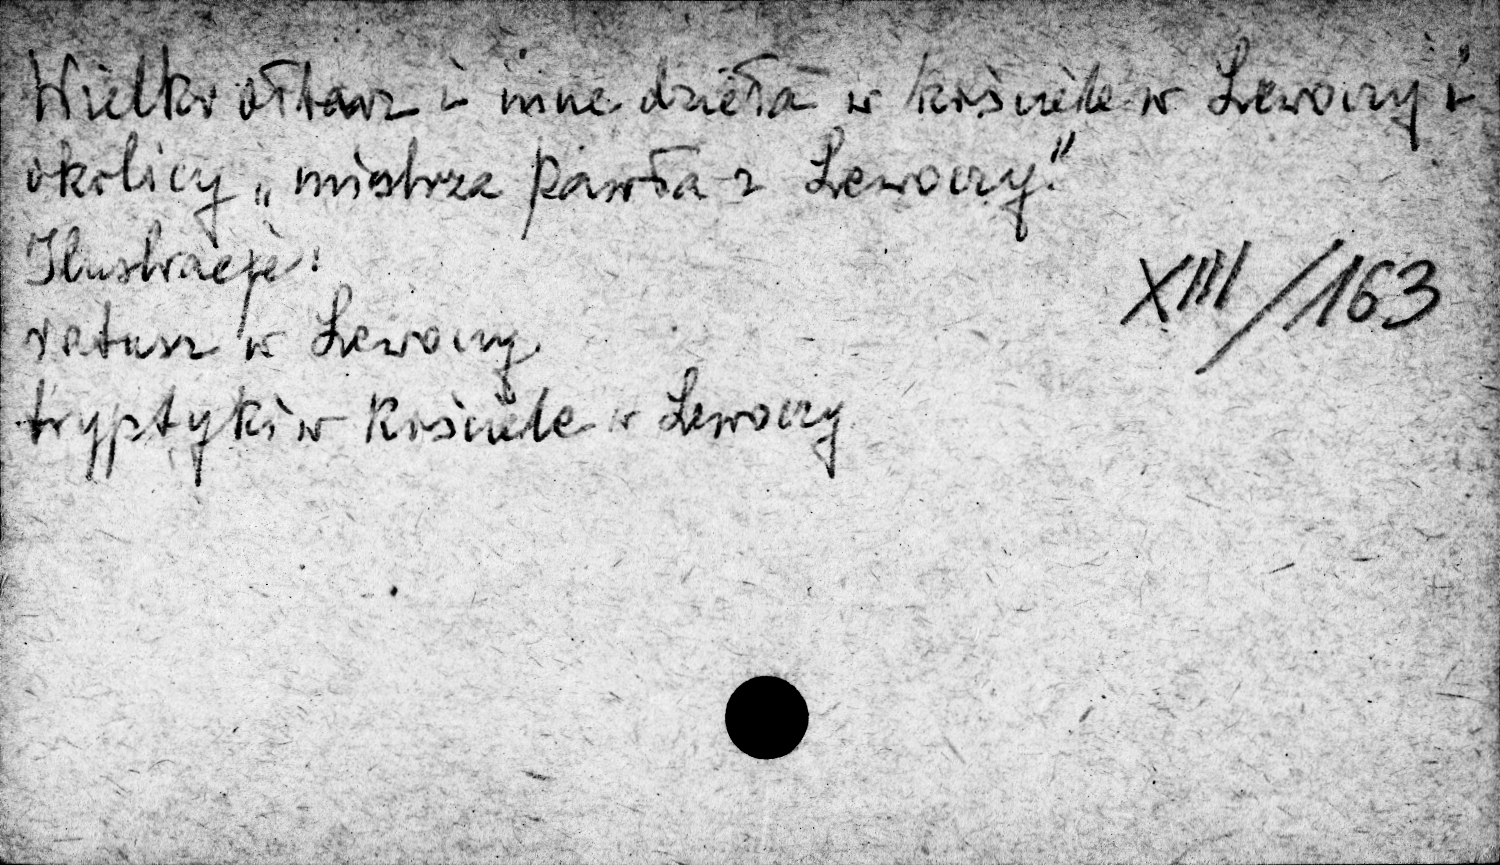 Wielki ołtarz i inne dzieła w kościele w Lewoczy i
okolicy „mistrza Pawła z Lewoczy."
Ilustracje:
XIII/163
ratusz w Lewoczy
tryptyki w kościele w Lewoczy